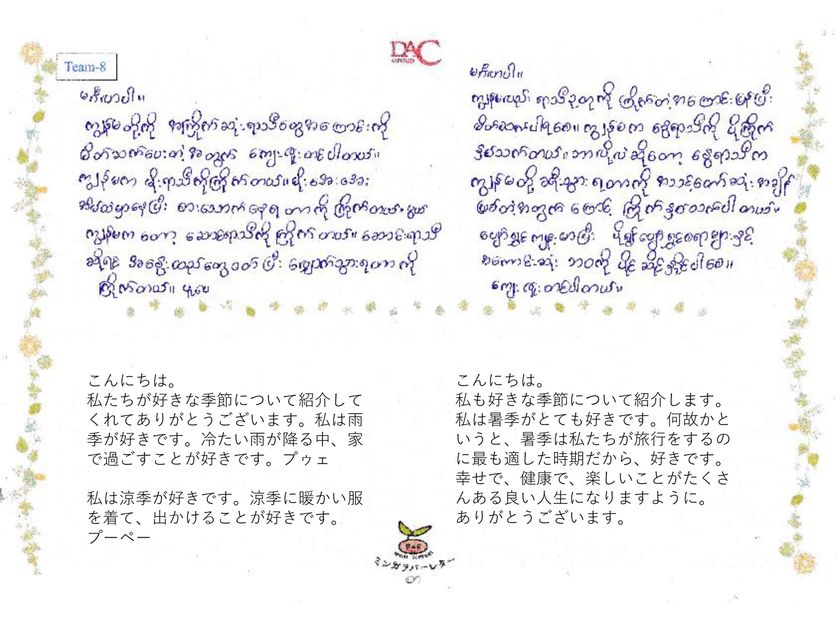 DAC
GROUP
Team-8
မင်္ဂလာပါ။
ကျွန်မတို့ကို အကြိုက်ဆုံးရာသီတွေအကြောင်းကို
မိတ်ဆက်ပေးတဲ့အတွက် ကျေးဇူးတင်ပါတယ်။
ကျွန်မက မိုးရာသီကိုကြိုက်တယ်။ မိုးအေးအေး
အိမ်ထဲမှာနေပြီး စားသောက်နေရတာကို ကြိုက်တယ်။
ကျွန်မကတော့ ဆောင်းရာသီကို ကြိုက်တယ်။ ဆောင်းရာသီ
ဆိုရင် အနွေးထည်တွေဝတ်ပြီး လျှောက်သွားရတာကို
ကြိုက်တယ်။ ပူပေ
မင်္ဂလာပါ။
ကျွန်မလည်း ရာသီဥတုကို ကြိုက်တဲ့အကြောင်း
မိတ်ဆက်ပါရစေ။ ကျွန်မက နွေရာသီကို ပိုကြိုက်
နှစ်သက်တယ်။ ဘာလို့လဲဆိုတော့ နွေရာသီက
ကျွန်မတို့ ခရီးသွားရတာကို အသင့်တော်ဆုံးအချိန်
ဖြစ်တဲ့အတွက်ကြောင့် ကြိုက်နှစ်သက်ပါတယ်။
ပျော်ရွှင်ကျန်းမာပြီး
အကောင်းဆုံး ဘဝကို ပိုင်ဆိုင်နိုင်ပါစေ။
ကျေးဇူးတင်ပါတယ်။
こんにちは。
私たちが好きな季節について紹介して
くれてありがとうございます。私は雨
季が好きです。冷たい雨が降る中、家
で過ごすことが好きです。プゥェ
私は涼季が好きです。涼季に暖かい服
を着て、出かけることが好きです。
プーペー
こんにちは。
私も好きな季節について紹介します。
私は暑季がとても好きです。何故かと
いうと、暑季は私たちが旅行をするの
に最も適した時期だから、好きです。
幸せで、健康で、楽しいことがたくさ
んある良い人生になりますように。
ありがとうございます。
ミンガラバーレター